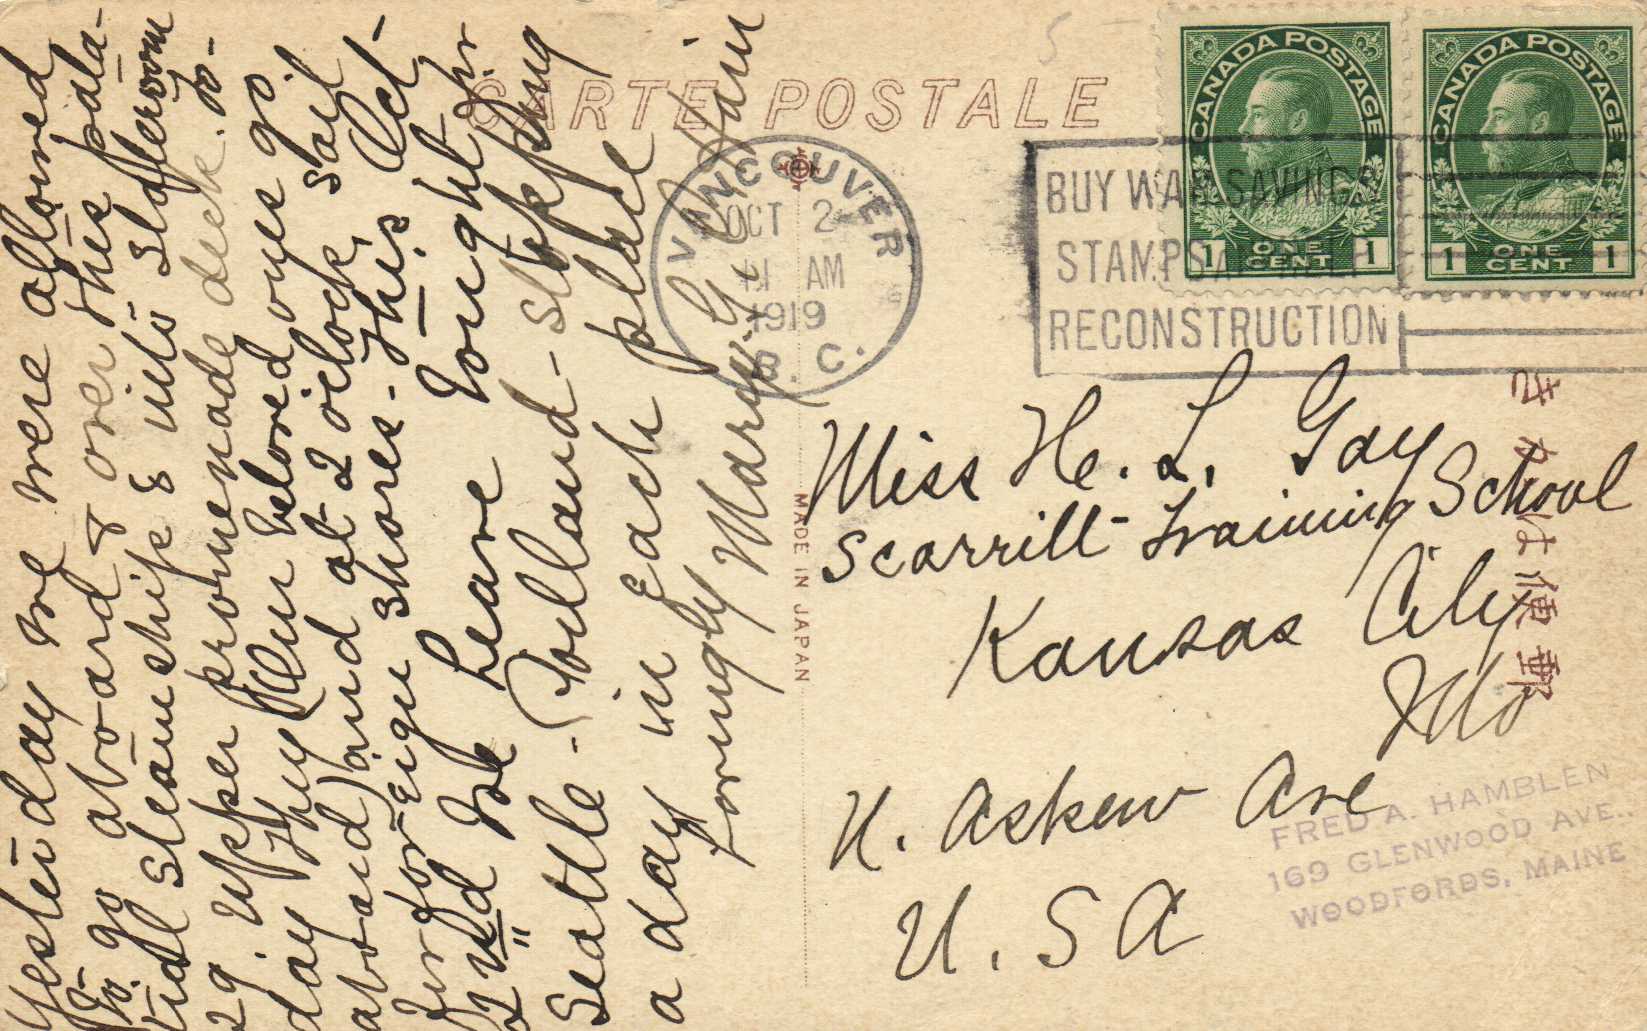 CARTE POSTALE
CANADA POSTAGE
1 ONE CENT 1
CANADA POSTAGE
1 ONE CENT 1
VANCOUVER
OCT 2
11 AM
1919
B. C.
BUY WAR SAVINGS
STAMPS
RECONSTRUCTION
Yesterday we were allowed
to go aboard & over this pala-
tial steamship & into stafferoom
29. Upper promenade deck. To-
day they (Our beloved ones go
aboard) and at 2 oclock, sail
for foreign shores. This Oct.
2nd We leave tonight for
Seattle - Portland - stopping
a day in each place
Lovingly Mary
MADE IN JAPAN
Miss H. L. Gay
Scarritt Training School
Kansas City
Mo
N. Askew Ave
U. S A
郵便はかき
FRED A. HAMBLEN
169 GLENWOOD AVE.,
WOODFORDS, MAINE